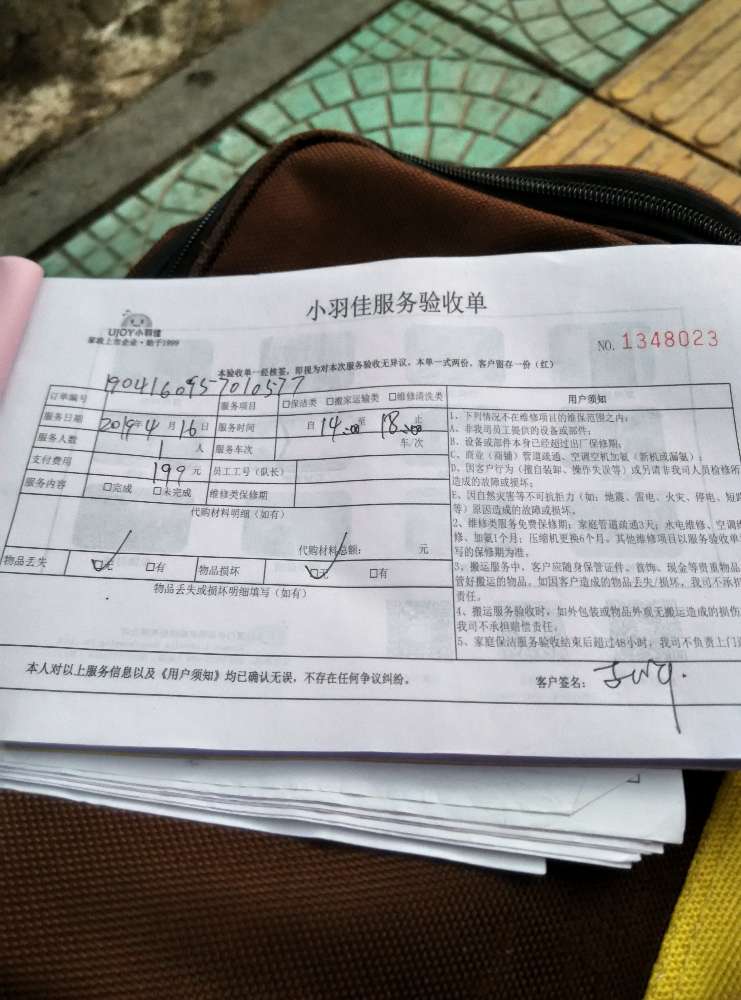 小羽佳服务验收单
UJOY小羽佳
家政上市企业·始于1999
NO. 1348023
本验收单一经核签，即视为对本次服务验收无异议，本单一式两份，客户留存一份（红）
订单编号 1904160957010577
服务项目 □保洁类 □搬家运输类 □维修清洗类
服务日期 2019年4月16日 服务时间 自14:00至18:00止
服务人数 1人 服务车次 车/次
支付费用 199元 员工工号（队长）
服务内容 □完成 □未完成 维修类保修期
代购材料明细（如有）
代购材料总额： 元
物品丢失 ☑无 □有 物品损坏 ☑无 □有
物品丢失或损坏明细填写（如有）
用户须知
1、下列情况不在维修项目的维保范围之内：
A、非我司员工提供的设备或部件；
B、设备或部件本身已经超过出厂保修期；
C、商业（商铺）管道疏通、空调空机加氟（新机或漏氟）；
D、因客户行为（擅自装卸、操作失误等）或另请非我司人员检修所
造成的故障或损坏；
E、因自然灾害等不可抗拒力（如：地震、雷电、火灾、停电、短路
等）原因造成的故障或损坏。
2、维修类服务免费保修期：家庭管道疏通3天；水电维修、空调维
修、加氨1个月；压缩机更换6个月。其他维修项目以服务验收单
写的保修期为准。
3、搬运服务中，客户应随身保管证件、首饰、现金等贵重物品
管好搬运的物品。如因客户造成的物品丢失/损坏，我司不承担
责任。
4、搬运服务验收时，如外包装或物品外观无搬运造成的损伤
我司不承担赔偿责任。
5、家庭保洁服务验收结束后超过48小时，我司不负责上门
本人对以上服务信息以及《用户须知》均已确认无误，不存在任何争议纠纷。
客户签名：